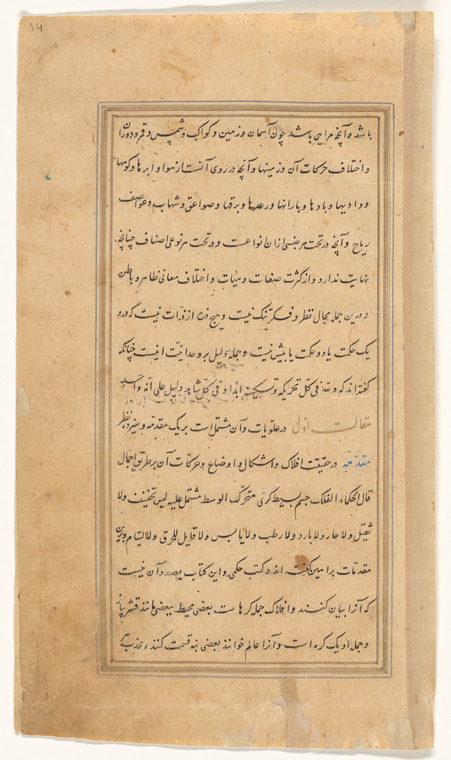 ۱۴
باشد و آنچه مرایی باشد چون آسمان و زمین و کواکب و شمس و قمر و دوران
و اختلاف حرکات آن و زمینها و آنچه در روی آنست از هوا و ابرها و کوهها
و وادیها و بادها و بارانها و رعدها و برقها و صواعق و شهاب و عواصف
ریاح و آنچه در تحت هر جنسی ازان انواعست و در تحت هر نوعی اصناف چنانچه
نهایت ندارد و از کثرت صفات و هیات و اختلاف معانی ظاهر و باطن
و درین جمله مجال نظر و فکر تنگ نیست و هیچ ذره از ذرات نیست که درو
یک حکمت یا دو حکمت یا بیش نیست و جمله دلیل بر وحدانیت اینست چنانکه
گفته‌اند که و لله فی کل تحریکه و تسکینه ابدا و فی کل شاهد دلیل علی انه واحد
مقالت اولی در علویات و آن مشتملست بر یک مقدمه و سیزده نظر
مقدمه در حقیقت افلاک و اشکال و اوضاع و حرکات آن بر طریق اجمال
قال الحکماء الفلک جسم بسیط کری متحرک الوسط مشتمل علیه لیس بخفیف ولا
ثقیل ولا حار ولا بارد ولا رطب ولا یابس ولا قابل للخرق ولا التیام و برین
مقدمات براهین گفته‌اند در کتب حکمی و این کتاب بصدد آن نیست
که آنرا بیان کنند و افلاک جمله کرهاست بعضی محیط ببعضی مانند قشر پیاز
و جمله او یک کره است و آنرا عالم خوانند بعضی بنه قسمت کنند